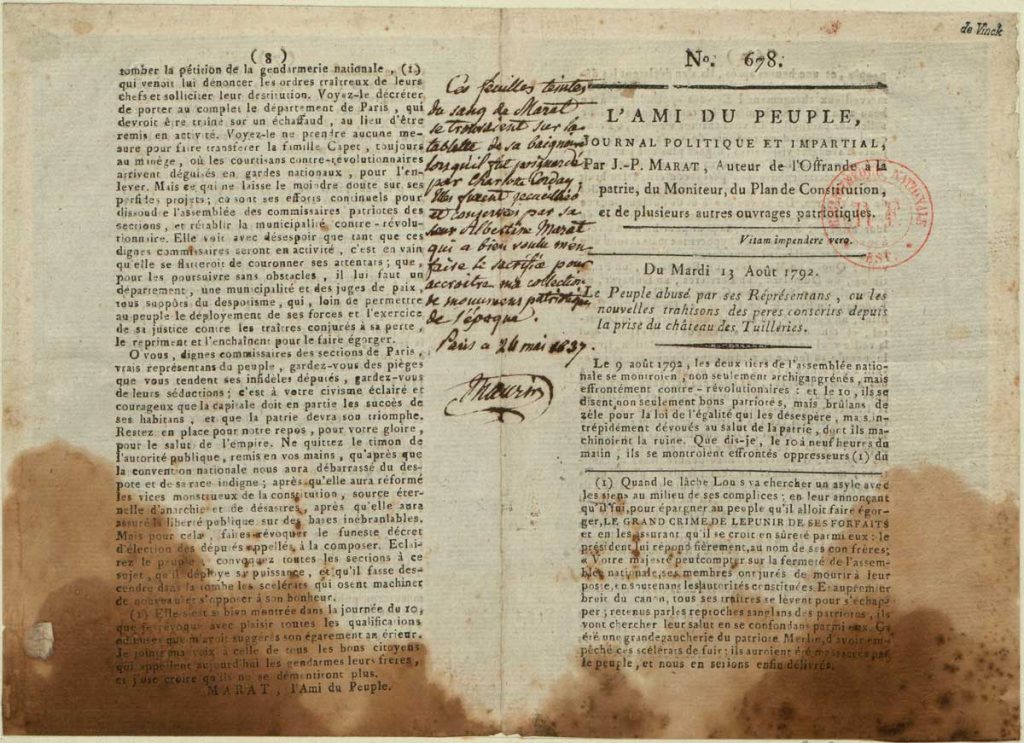 de Vinck
( 8 )
tomber la pétition de la gendarmerie nationale, (1)
qui venoit lui dénoncer les ordres traîtreux de leurs
chefs et solliciter leur destitution. Voyez-le décréter
de porter au complet le département de Paris, qui
devroit être traîné sur un échaffaud, au lieu d'être
remis en activité. Voyez-le ne prendre aucune me-
sure pour faire transférer la famille Capet, toujours
au manège, où les courtisans contre-révolutionnaires
arrivent déguisés en gardes nationaux, pour l'en-
lever. Mais ce qui ne laisse le moindre doute sur ses
perfides projets; ce sont ses efforts continuels pour
dissoudre l'assemblée des commissaires patriotes des
sections, et rétablir la municipalité contre-révolu-
tionnaire. Elle voit avec désespoir que tant que ces
dignes commissaires seront en activité, c'est en vain
qu'elle se flatteroit de couronner ses attentats; que,
pour les poursuivre sans obstacles, il lui faut un
département, une municipalité et des juges de paix,
tous suppôts du despotisme, qui, loin de permettre
au peuple le déployement de ses forces et l'exercice
de sa justice contre les traîtres conjurés à sa perte,
le repriment et l'enchaînent pour le faire égorger.
O vous, dignes commissaires des sections de Paris,
vrais représentans du peuple, gardez-vous des pièges
que vous tendent ses infideles députés, gardez-vous
de leurs séductions; c'est à votre civisme éclairé et
courageux que la capitale doit en partie les succès de
ses habitans, et que la patrie devra son triomphe.
Restez en place pour notre repos, pour votre gloire,
pour le salut de l'empire. Ne quittez le timon de
l'autorité publique, remis en vos mains, qu'après que
la convention nationale nous aura débarrassé du des-
pote et de sa race indigne; après qu'elle aura réformé
les vices monstrueux de la constitution, source éter-
nelle d'anarchie et de désastres, après qu'elle aura
assuré la liberté publique sur des bases inébranlables.
Mais pour cela, faites révoquer le funeste décret
d'élection des députés appellés à la composer. Eclai-
rez le peuple, convoquez toutes les sections à ce
sujet, qu'il déploye sa puissance, et qu'il fasse des-
cendre dans la tombe les scélérats qui osent machiner
de nouveau et s'opposer à son bonheur.
(1) Elle s'est si bien montrée dans la journée du 10,
que je révoque avec plaisir toutes les qualifications
odieuses que m'avoit suggérés son égarement antérieur.
Je joins ma voix à celle de tous les bons citoyens
qui appellent aujourd'hui les gendarmes leurs frères,
et j'ose croire qu'ils ne se démentiront plus.
MARAT, l'Ami du Peuple.
Ces feuilles teintes
du sang de Marat
se trouvaient sur la
tablette de sa baignoire
lorsqu'il fut poignardé
par Charlotte Corday
Elles furent recueillies
et conservées par sa
sœur Albertine Marat
qui a bien voulu m'en
faire le sacrifice pour
accroitre ma collection
de monumens patriotiques
de l'époque.
Paris ce 26 mai 1837.
Maurin
No. 678.
L'AMI DU PEUPLE,
JOURNAL POLITIQUE ET IMPARTIAL,
Par J.-P. MARAT, Auteur de l'Offrande à la
patrie, du Moniteur, du Plan de Constitution,
et de plusieurs autres ouvrages patriotiques.
Vitam impendere vero.
BIBLIOTHEQUE NATIONALE
R.F.
EST.
Du Mardi 13 Août 1792.
Le Peuple abusé par ses Réprésentans, ou les
nouvelles trahisons des peres conscrits depuis
la prise du château des Tuilleries.
Le 9 août 1792, les deux tiers de l'assemblée natio-
nale se montroient non seulement archigangrénés, mais
effrontément contre-révolutionnaires: et le 10, ils se
disent non seulement bons patriotes, mais brûlans de
zèle pour la loi de l'égalité qui les désespère, mais in-
trépidement dévoués au salut de la patrie, dont ils ma-
chinoient la ruine. Que dis-je, le 10 à neuf heures du
matin, ils se montroient effrontés oppresseurs (1) du
(1) Quand le lâche Louis va chercher un asyle avec
les siens au milieu de ses complices; en leur annonçant
qu'il fuit pour épargner au peuple qu'il alloit faire égor-
ger, LE GRAND CRIME DE LE PUNIR DE SES FORFAITS
et en les assurant qu'il se croit en sûreté parmi eux: le
président lui répond fièrement, au nom de ses confrères;
« Votre majesté peut compter sur la fermeté de l'assem-
blée nationale, ses membres ont jurés de mourir à leur
poste, en soutenant les autorités constituées. Et au premier
bruit du canon, tous ses traîtres se lèvent pour s'échap-
per; retenus par les reproches sanglans des patriotes, ils
vont chercher leur salut en se confondans parmi eux. C'a
été une grande gaucherie du patriote Merlin, d'avoir em-
pêché ces scélérats de fuir; ils auroient été massacrés par
le peuple, et nous en serions enfin délivrés.